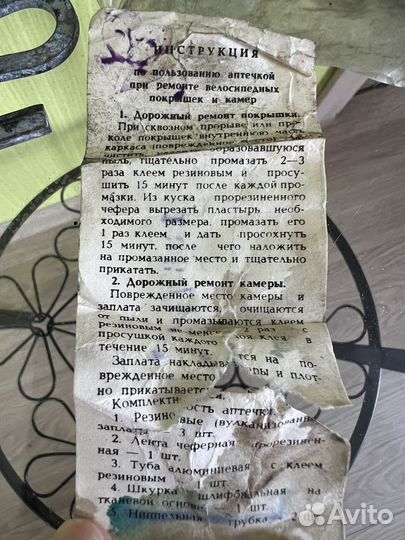 ИНСТРУКЦИЯ
по пользованию аптечкой
при ремонте велосипедных
покрышек и камер
1. Дорожный ремонт покрышки.
При сквозном прорыве или про-
коле покрышек внутреннюю часть
каркаса
образовавшуюся
пыль, тщательно промазать 2—3
раза клеем резиновым и просу-
шить 15 минут после каждой про-
мазки. Из куска прорезиненного
чефера вырезать пластырь необ-
ходимого размера, промазать его
1 раз клеем и дать просохнуть
15 минут, после чего наложить
на промазанное место и тщательно
прикатать.
2. Дорожный ремонт камеры.
Поврежденное место камеры и
заплата зачищаются, очищаются
от пыли и промазываются клеем
резиновым не менее 2 раз с
просушкой каждого клея в
течение 15 минут.
Заплата накладывается на по-
врежденное место ры и плот-
но прикатывается.
Комплектность аптечки.
1. Резиновые (вулканизованные)
заплаты — 3 шт.
2. Лента чеферная прорезинен-
ная — 1 шт.
3. Туба алюминиевая с клеем
резиновым шт.
4. Шкурка шлифовальная на
тканевой основе 1 шт.
5. Ниппельная трубка
Avito